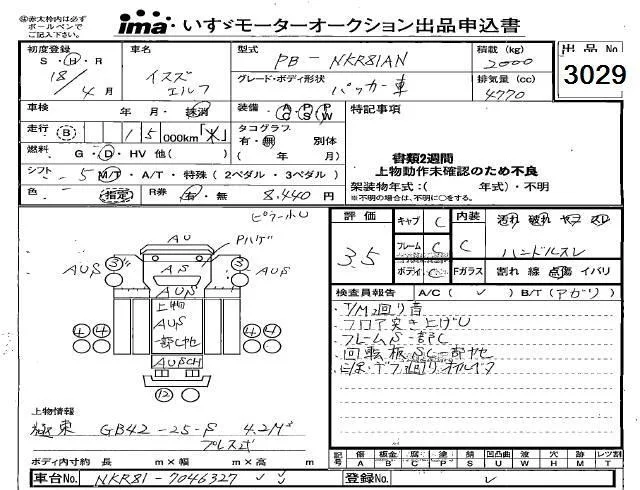 ㊟赤太枠内は必ず
ボールペンで
ご記入下さい。
ima いすゞモーターオークション出品申込書
初度登録
S・H・R
18年4月
車名
イスズ
エルフ
型式
PB-NKR81AN
グレード・ボディ形状
パッカー車
積載 (kg)
2000
排気量 (cc)
4770
出品No
3029
車検 年 月・抹消
装備 A/C P/S P/W
特記事項
走行 B 15 000km
タコグラフ
有・無 別体
( 年 月)
燃料 G・D・HV 他( )
シフト 5 M/T・A/T・特殊 (2ペダル・3ペダル)
書類2週間
上物動作未確認のため不良
架装物年式:( 年式)・不明
※不明の場合は、不明に○をする。
色 (指定) R券 有・無 8,440円
ピラー小U
AU
Pハゲ
3 3
AUS AUS
AS
上物
AUS
一部し地
4 4 4 4
AUSCH
12
評価
3.5
キャブ C
フレーム C
ボディ C
内装
C
汚れ 破れ ヤコ スレ
ハンドルスレ
Fガラス 割れ 線 点傷 イバリ
検査員報告 A/C( ✓ ) B/T(アガリ)
・T/M 2回り音
・フロア突き上げU
・フレームS一部C
・回転板SC一部
上物情報
極東 GB42-25-S 4.2M³
プレス式
ボディ内寸約 長 m×幅 m×高 m
記号 傷A 板金B 腐C 塗P 錆S 凹凸曲U 波W 穴H 欠M レツ割T
車台No. NKR81-7046327
登録No.